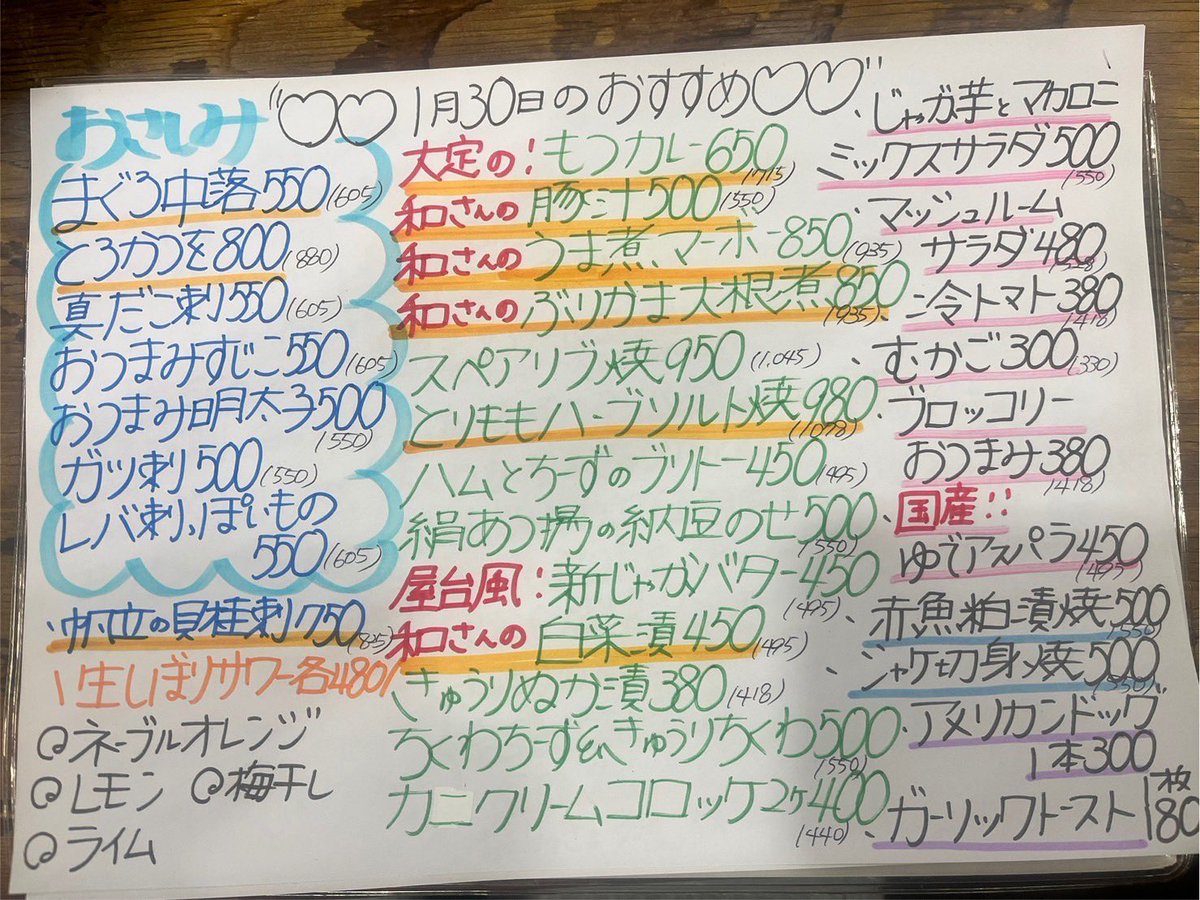 "♡♡1月30日のおすすめ♡♡"
おさしみ
まぐろ中落550(605)
とろかつを800(880)
真だこ刺550(605)
おつまみすじこ550(605)
おつまみ明太子500
(550)
ガツ刺500(550)
レバ刺っぽいもの
550(605)
、帆立の貝柱刺750(825)
\生しぼりサワー各480/
@ネーブルオレンジ
@レモン @梅干し
@ライム
大定の!もつカレー650
(715)
和さんの豚汁500(550)
和さんのうま煮マーボー850(935)
和さんのぶりかま大根煮850
(935)
スペアリブ焼950(1,045)
とりももハーブソルト焼980
(1078)
ハムとちーずのブリトー450(495)
絹あつ揚の納豆のせ500
(550)
屋台風!新じゃがバター450
(495)
和さんの白菜漬450(495)
きゅうりぬか漬380(418)
ちくわちーず&きゅうりちくわ500
(550)
カニクリームコロッケ2ケ400
(440)
、じゃが芋とマカロニ
ミックスサラダ500
(550)
マッシュルーム
サラダ480
(528)
冷トマト380
(418)
、むかご300(330)
ブロッコリー
おつまみ380
(418)
、国産!!
ゆでアスパラ450
(495)
、赤魚粕漬焼500
(550)
、シャケ切身焼500
(550)
、アメリカンドック
1本300
、ガーリックトースト1枚
180